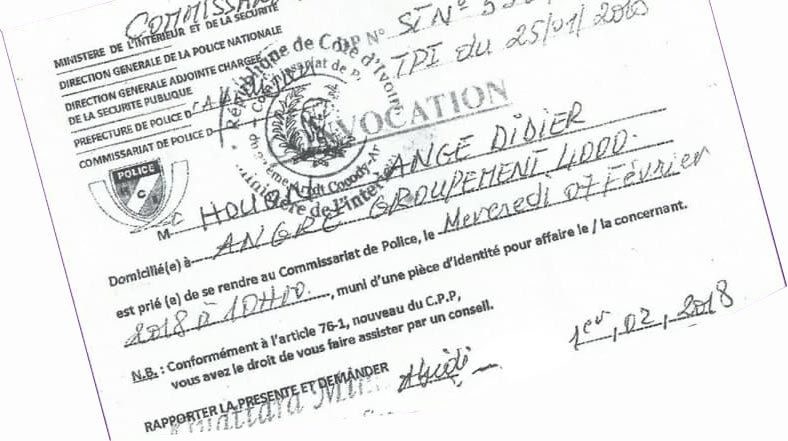 MINISTERE DE L'INTERIEUR ET DE LA SECURITE
DIRECTION GENERALE DE LA POLICE NATIONALE
DIRECTION GENERALE ADJOINTE CHARGEE
DE LA SECURITE PUBLIQUE
PREFECTURE DE POLICE D
COMMISSARIAT DE POLICE D
SI N°
TPI du 25/01/2018
République de Côte d'Ivoire
Commissariat de P.
Ministère de l'Intér
VOCATION
POLICE
M HOU ANGE DIDIER
Domicilié(e) à ANGRE GROUPEMENT 4000.
est prié (e) de se rendre au Commissariat de Police, le Mercredi 07 Février
2018 à 10H00, muni d'une pièce d'identité pour affaire le / la concernant.
N.B. : Conformément à l'article 76-1, nouveau du C.P.P,
vous avez le droit de vous faire assister par un conseil.
1er, 02, 2018
RAPPORTER LA PRESENTE ET DEMANDER